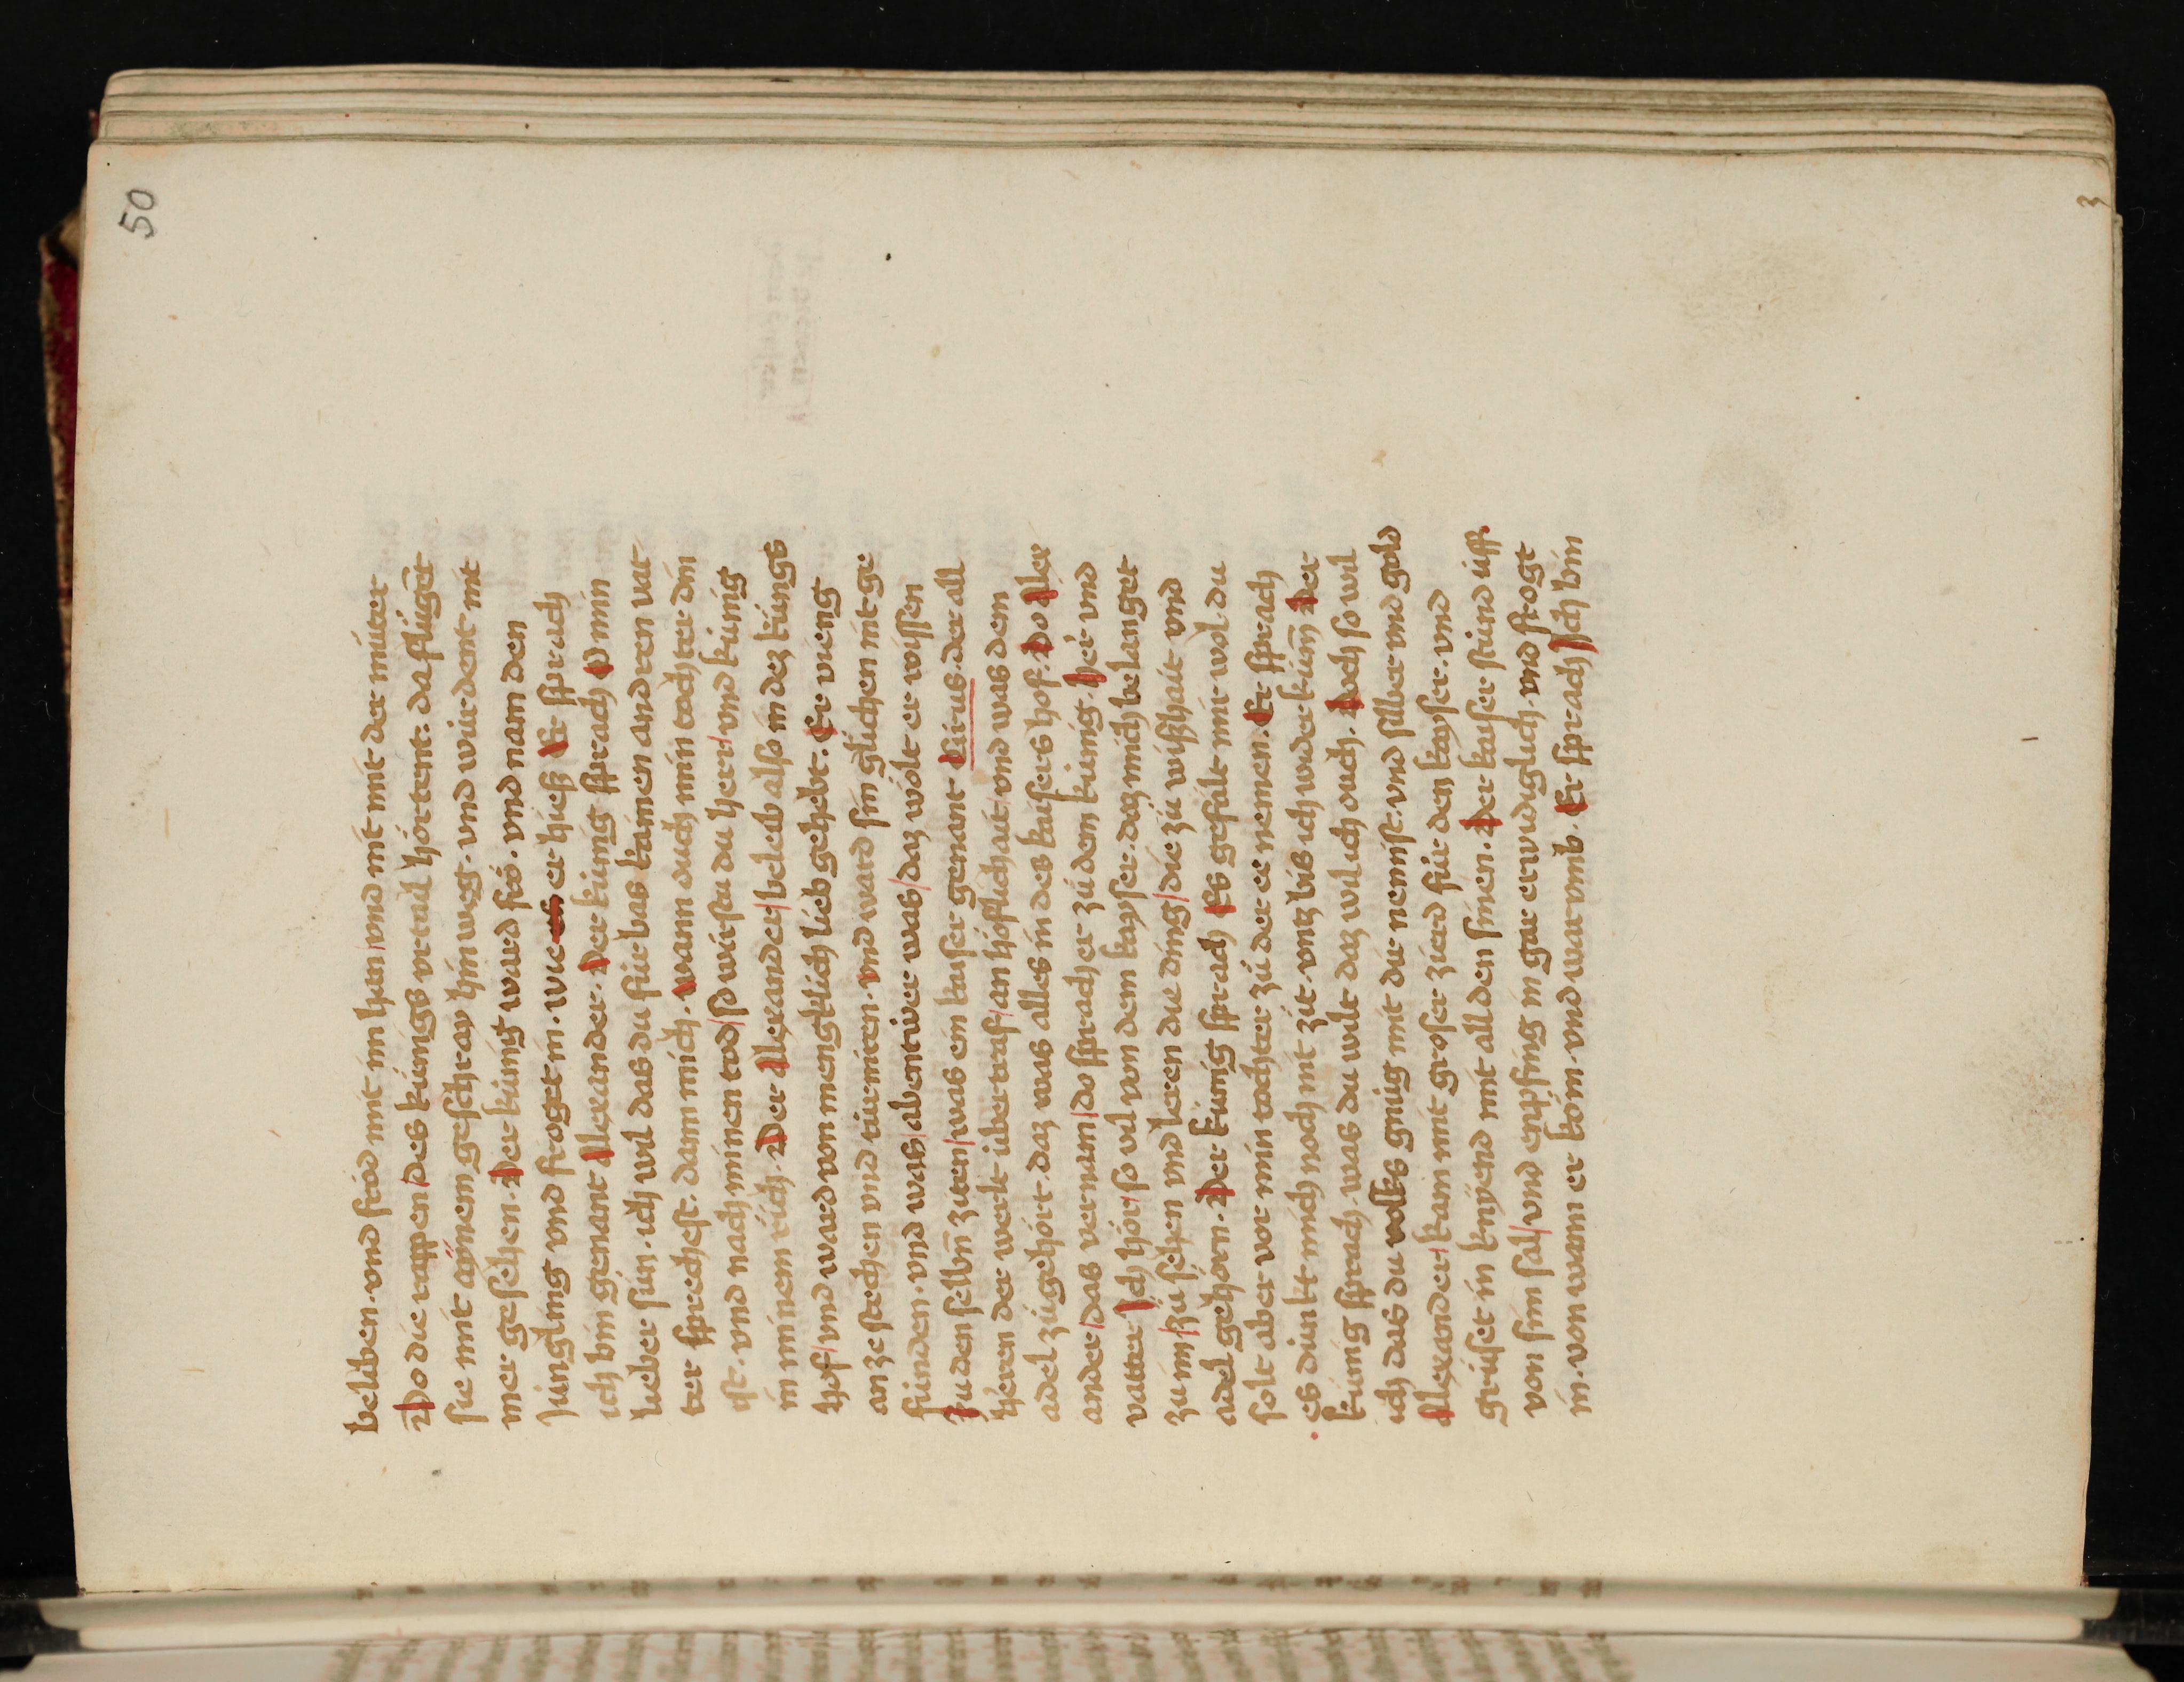 50
beliben · vnd fröd mit im han / vnd nit mit der müter
Do die rappen / des künigs vrtail hörtent · da flügēt
sie mit aÿnem geschray hin weg · vnd würdent nit
mer gesehen · Der künig ward fro · vnd nam den
Jüngling vnd froget in · wie er hiesß Er sprach
ich bin genant Allexander · Der künig sprach O min
lieber sün · ich wil das du für bas kainen andren vat
ter sprechest · dann mich · wann ouch min tochter din
ist · vnd nach minen tod / so wirstu du herr / vnd künig
in minem rich · Der Allexander / beleib also in dez küngs
hof / vnd ward von mengklich lieb gehebt · Er vieng
an ze stechen vnd turniren · vnd ward sin glichen nit ge
fünden · vnd was / abentüwer was / daz wolt er wissen
Zu den selbn̄ ziten / was ein kaiser genant Tirus · der all
heren der welt übertraf / an höflichait / vnd was dem
adel zügehört · daz was alles in des kaisers hof · Do Alex
ander / das vernam / do sprach er zü dem künig · Her vnd
vatter Ich hör / so vil von dem kayser · daz mich belanget
zu im / zü sehen vnd leren die ding / die zü wißhait vnd
adel gehörn · Der künig sprach Es gefalt mir wol · du
solt aber vor min tochter zü der ee nemen · Er sprach
es dünkt mich noch nit zit · vntz bis ich wider küm̄ Der
künig sprach was du wilt daz wil ich ouch · Doch so wil
ich das du volks gnüg mit dir nemist · vnd silber vnd gold
Allexander / kam mit groser zierd für den kayser · vnd
grüset in knÿend mit all den sinen · Der kaiser stünd uff
von sim sal / vnd enpfing in gar erwidiglich · vnd frogt
in · von wann er köm · vnd warumb · Er sprach Ich bin